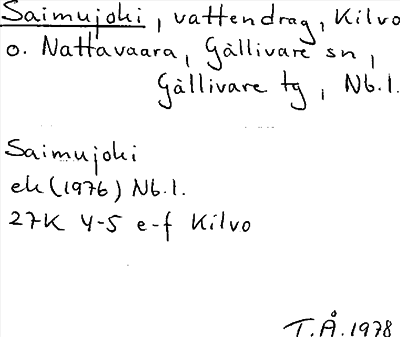 Saimujoki, vattendrag, Kilvo
o. Nattavaara, Gällivare sn,
Gällivare tg, Nb.l.
Saimujoki
ek (1976) Nb.l.
27K 4-5 e-f Kilvo
T.Å. 1978